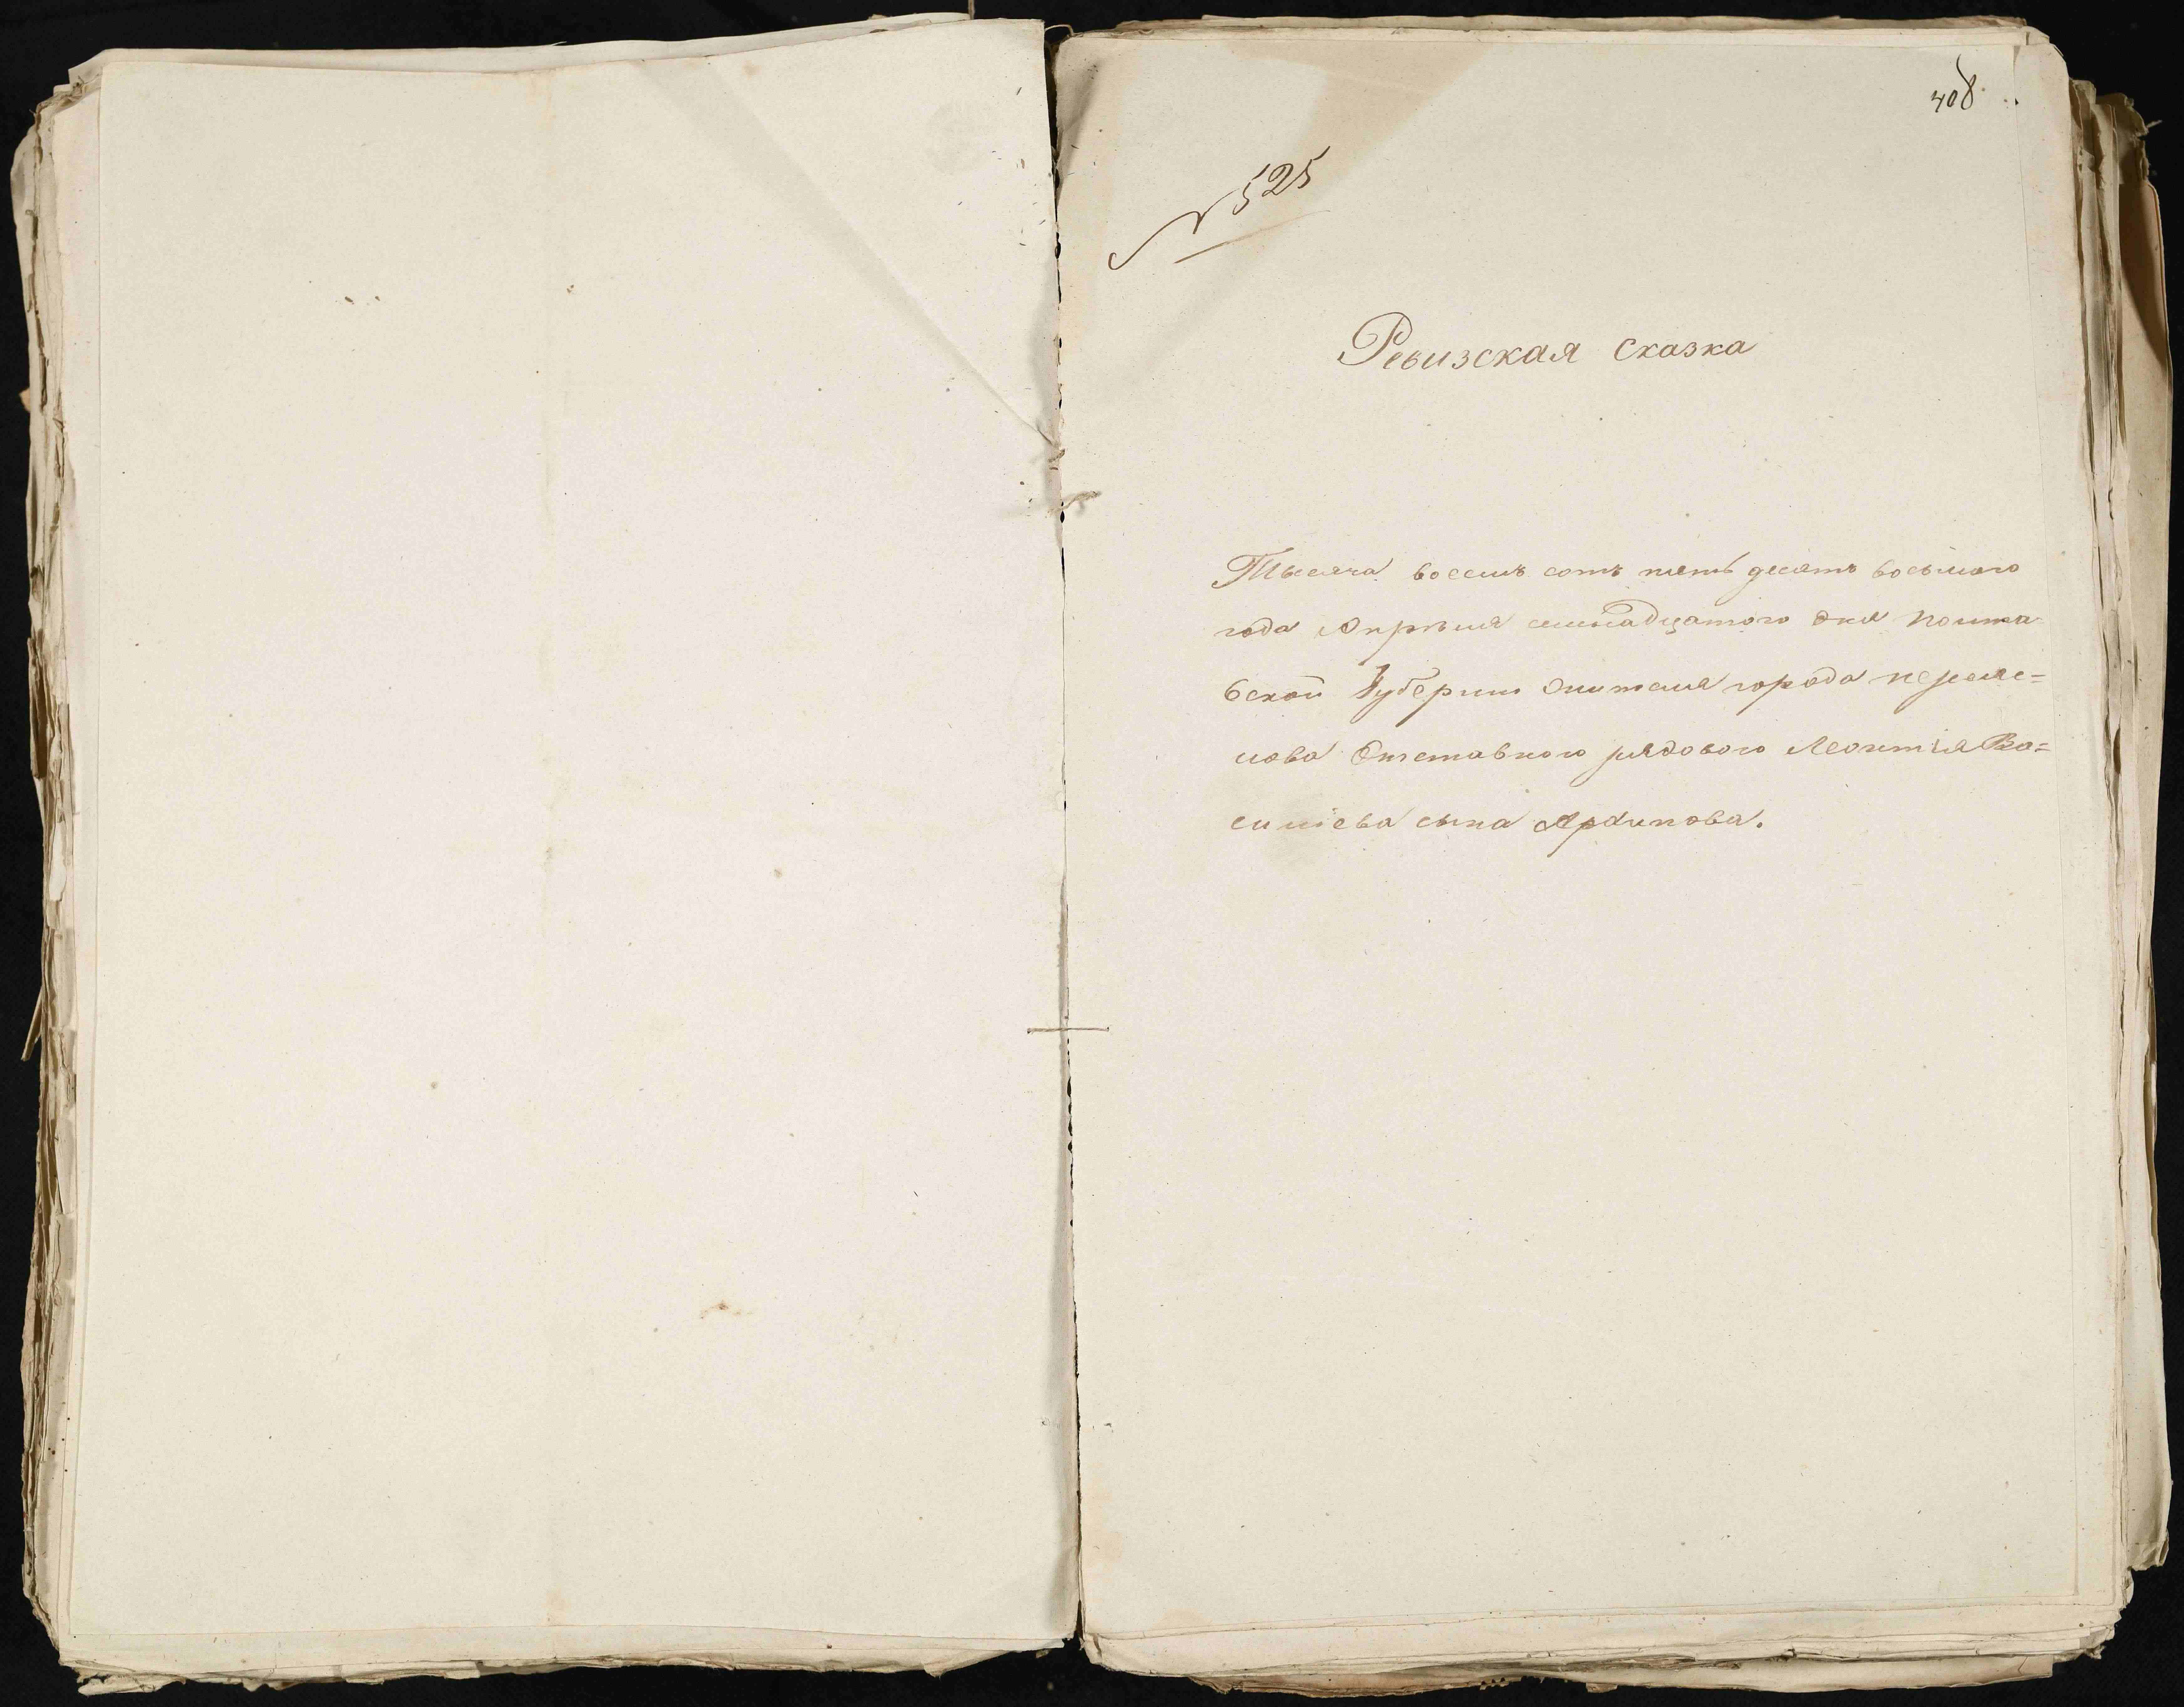 408
N 525
Ревизская сказка
Тысяча восемъ сотъ пять десятъ восьмого
года Апрѣля семнадцатого дня полта-
вской Губерніи жителя города переясе=
лова Отставного рядового Леонтія Ва=
силіева сына